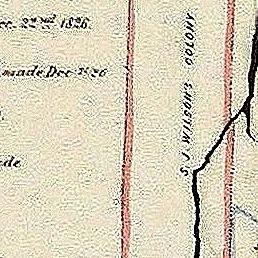 ec. 22nd 1826.
made Dec 1826
ade
S. J. WILSONS COLONY